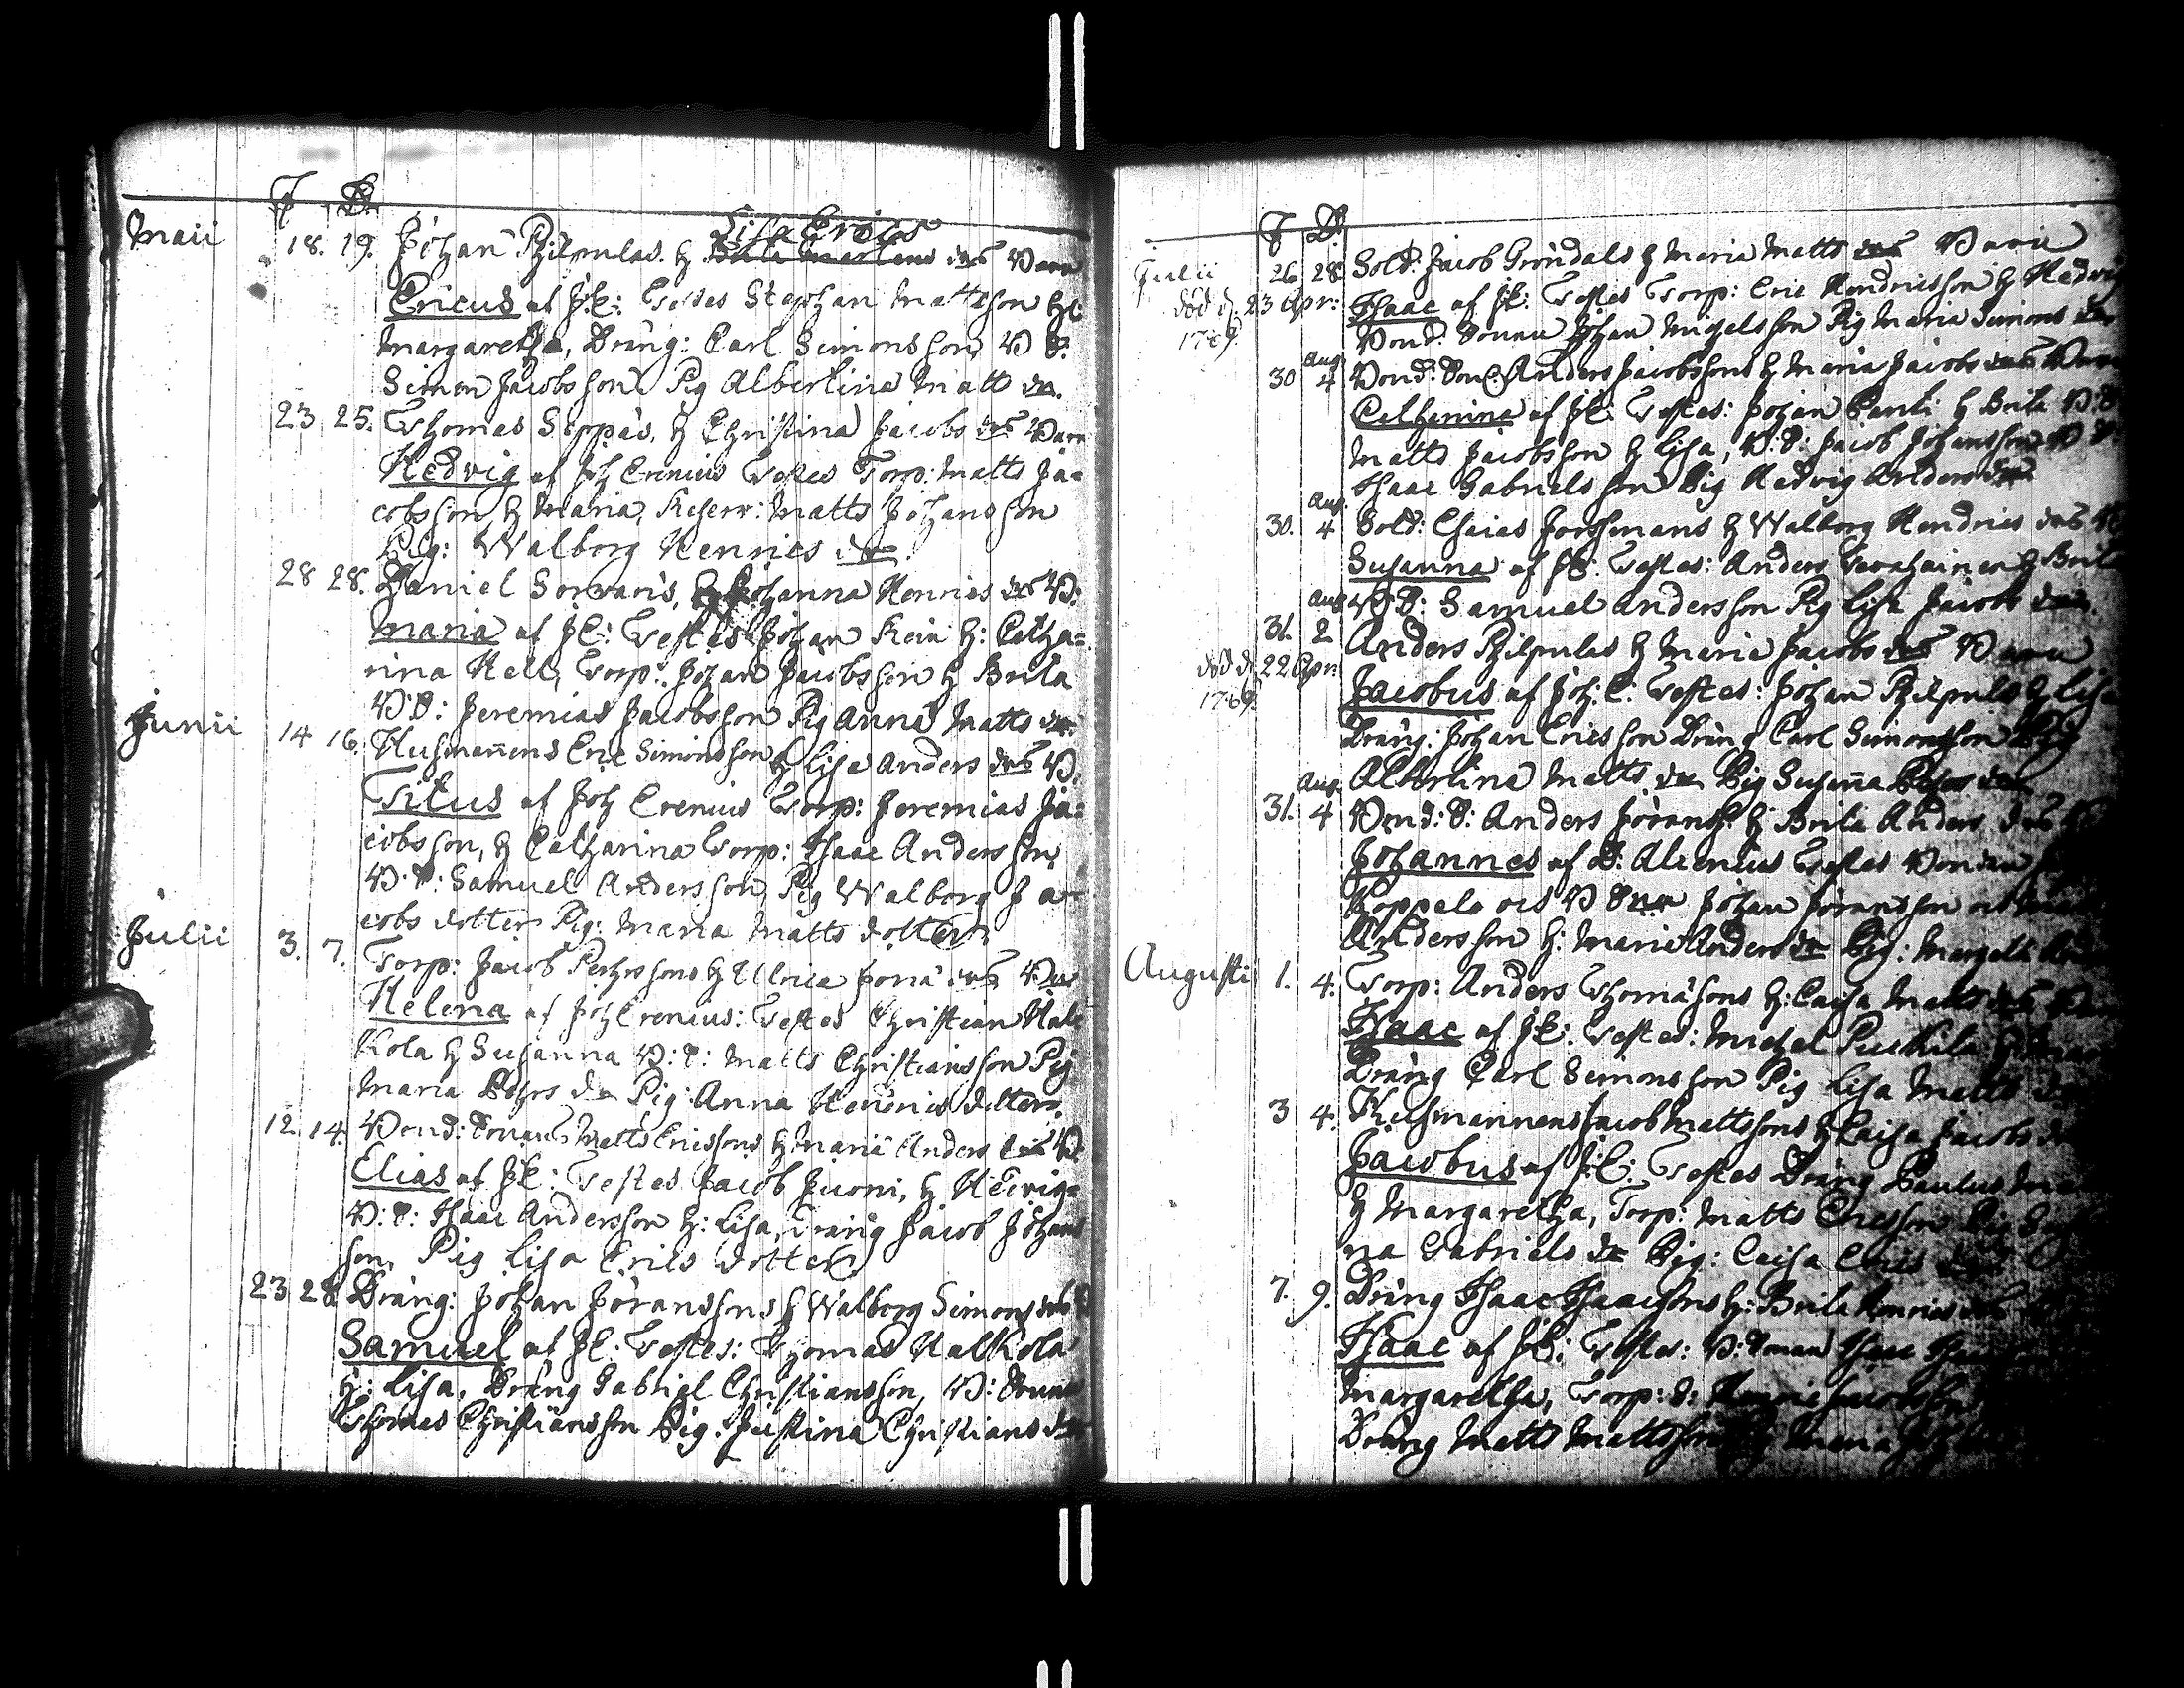 F D.
Maii 18. 19. Johan Philpulas. H Lisa Erics Brita Martens dts Barn
Ericus af J.C: Testes Stephan Mattsson H:
Margaretha, Dräng: Carl Simonsson B D.
Simon Jacobsson Pig Albertina Matts dr.
23 25. Thomas Seppäs, H Christina Jacobs dts Barn
Hedvig af Joh Crenius Testes Torp: Matts Ja=
cobsson, H Maria, Reserv: Matts Johansson
Pig: Walborg Henrics dr.
28 28. Daniel Sorvaris, H Johanna Henrics dts B:
Maria af J.C: Testes Johan Kein H: Catha=
rina Hell, Torp: Johan Jacobsson H Brita
B: D: Jeremias Jacobsson Pig Anna Matts dr:
Junii 14 16. Husmannens Eric Simonsson H Lisa Anders dts B:
Titus af Joh Crenius Torp: Jeremias Ja=
cobsson, H Catharina Torp: Isaac Andersson,
B: D: Samuel Andersson, Pig Walborg Ja=
cobs dotter Pig: Maria Matts dotter
Julii 3. 7. Torp: Jacob Pehrssons H Ulrica Jöra dts Barn
Helena af Joh Crenius: Testes Christian Hal
kola H Susanna B: D: Matts Christiansson Pig
Maria Pehrs dr Pig: Anna Henrics dotter.
12. 14. Bond: Sonens Matts Ericssons H Maria Anders dts B
Elias af J.C: Testes Jacob Juoni, H Hedvig=
B: D: Isaac Andersson H: Lisa, Dräng Jacob Johans
son, Pig Lisa Erics dotter
23 28. Dräng: Johan Jöranssons H Walborg Simons dts B
Samuel af J.C. Testes: Thomas Halkola
H: Lisa, Dräng Gabriel Christiansson, B: Sonen
Thomas Christiansson Pig: Justina Christians dr
F D.
Julii 26 28 Sold: Jacob Gröndals H Maria Matts dts Barn
död d. 23 Apr: 1769. Isaac af J.C: Testes Torp: Eric Hendricsson H Hedvig
Bond: Sonen Johan Michelsson Pig Maria Simons dr
30 Aug. 4 Bond: Son: Anders Jacobssons H Maria Jacobs dts Barn
Catharina af J.C. Testes: Johan Panti H Brita B: D
Matts Jacobsson H Lisa, B: D: Jacob Johansson B D:
Isaac Gabrielsson Pig Hedvig Anders dr
30. Aug. 4 Sold: Esaias Forssmans H Walborg Hendrics dts
Susanna af J.C. Testes: Anders H Brita
B: D: Samuel Andersson Pig Lisa Jacobs dr
31. Aug 2 Anders Philpulas H Maria Jacobs dts Barn
död d. 22 Apr: 1769. Jacobus af Joh: C: Testes: Johan Philpulas H Lisa
Dräng: Johan Ericsson Dräng Carl Simonsson Pig
Albertina Matts dr Pig Susanna Pehrs dr
31. Aug. 4 Bond: D: Anders Jöranss. H Brita Anders dts
Johannes af D: Alcenius Testes Bonden
Koppelo och B Sonen Johan Jöransson och
Andersson H: Maria Anders dr Pig: Margeta
Augusti 1. 4. Torp: Anders Thomäsons H: Caisa Matts dts
Isaac af J.C. Testes: Michel Puckila H
Dräng Carl Simonsson Pig Lisa Matts
3 4. Husmannens Jacob Mattssons H Caisa Jacobs
Jacobus af J.C. Testes Dräng Paulus
H Margaretha, Torp: Matts Ericsson Pig
na Gabriels dr Pig: Caisa Erics
7. 9. Dräng Isaac Isaacsons H: Brita Henrics
Isaac af J.C: Testes: B: Sonen Isaac
Margaretha, Torp: D: Henric Jacobsson
Dräng Matts Mattsson Maria